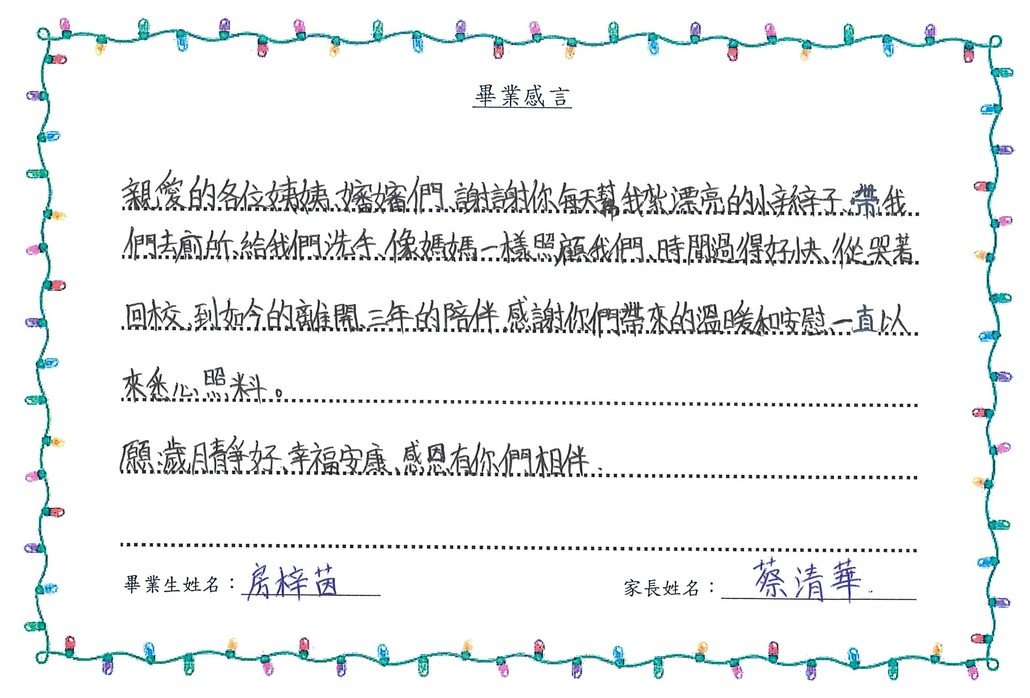 畢業感言
親愛的各位姨姨、嬸嬸們、謝謝你每天幫我紮漂亮的小辮子、帶我
們去廁所、給我們洗手、像媽媽一樣照顧我們、時間過得好快、從哭著
回校、到如今的離開、三年的陪伴、感謝你們帶來的溫暖和安慰、一直以
來悉心照料。
願歲月靜好、幸福安康、感恩有你們相伴、
畢業生姓名：房梓茵
家長姓名：蔡清華